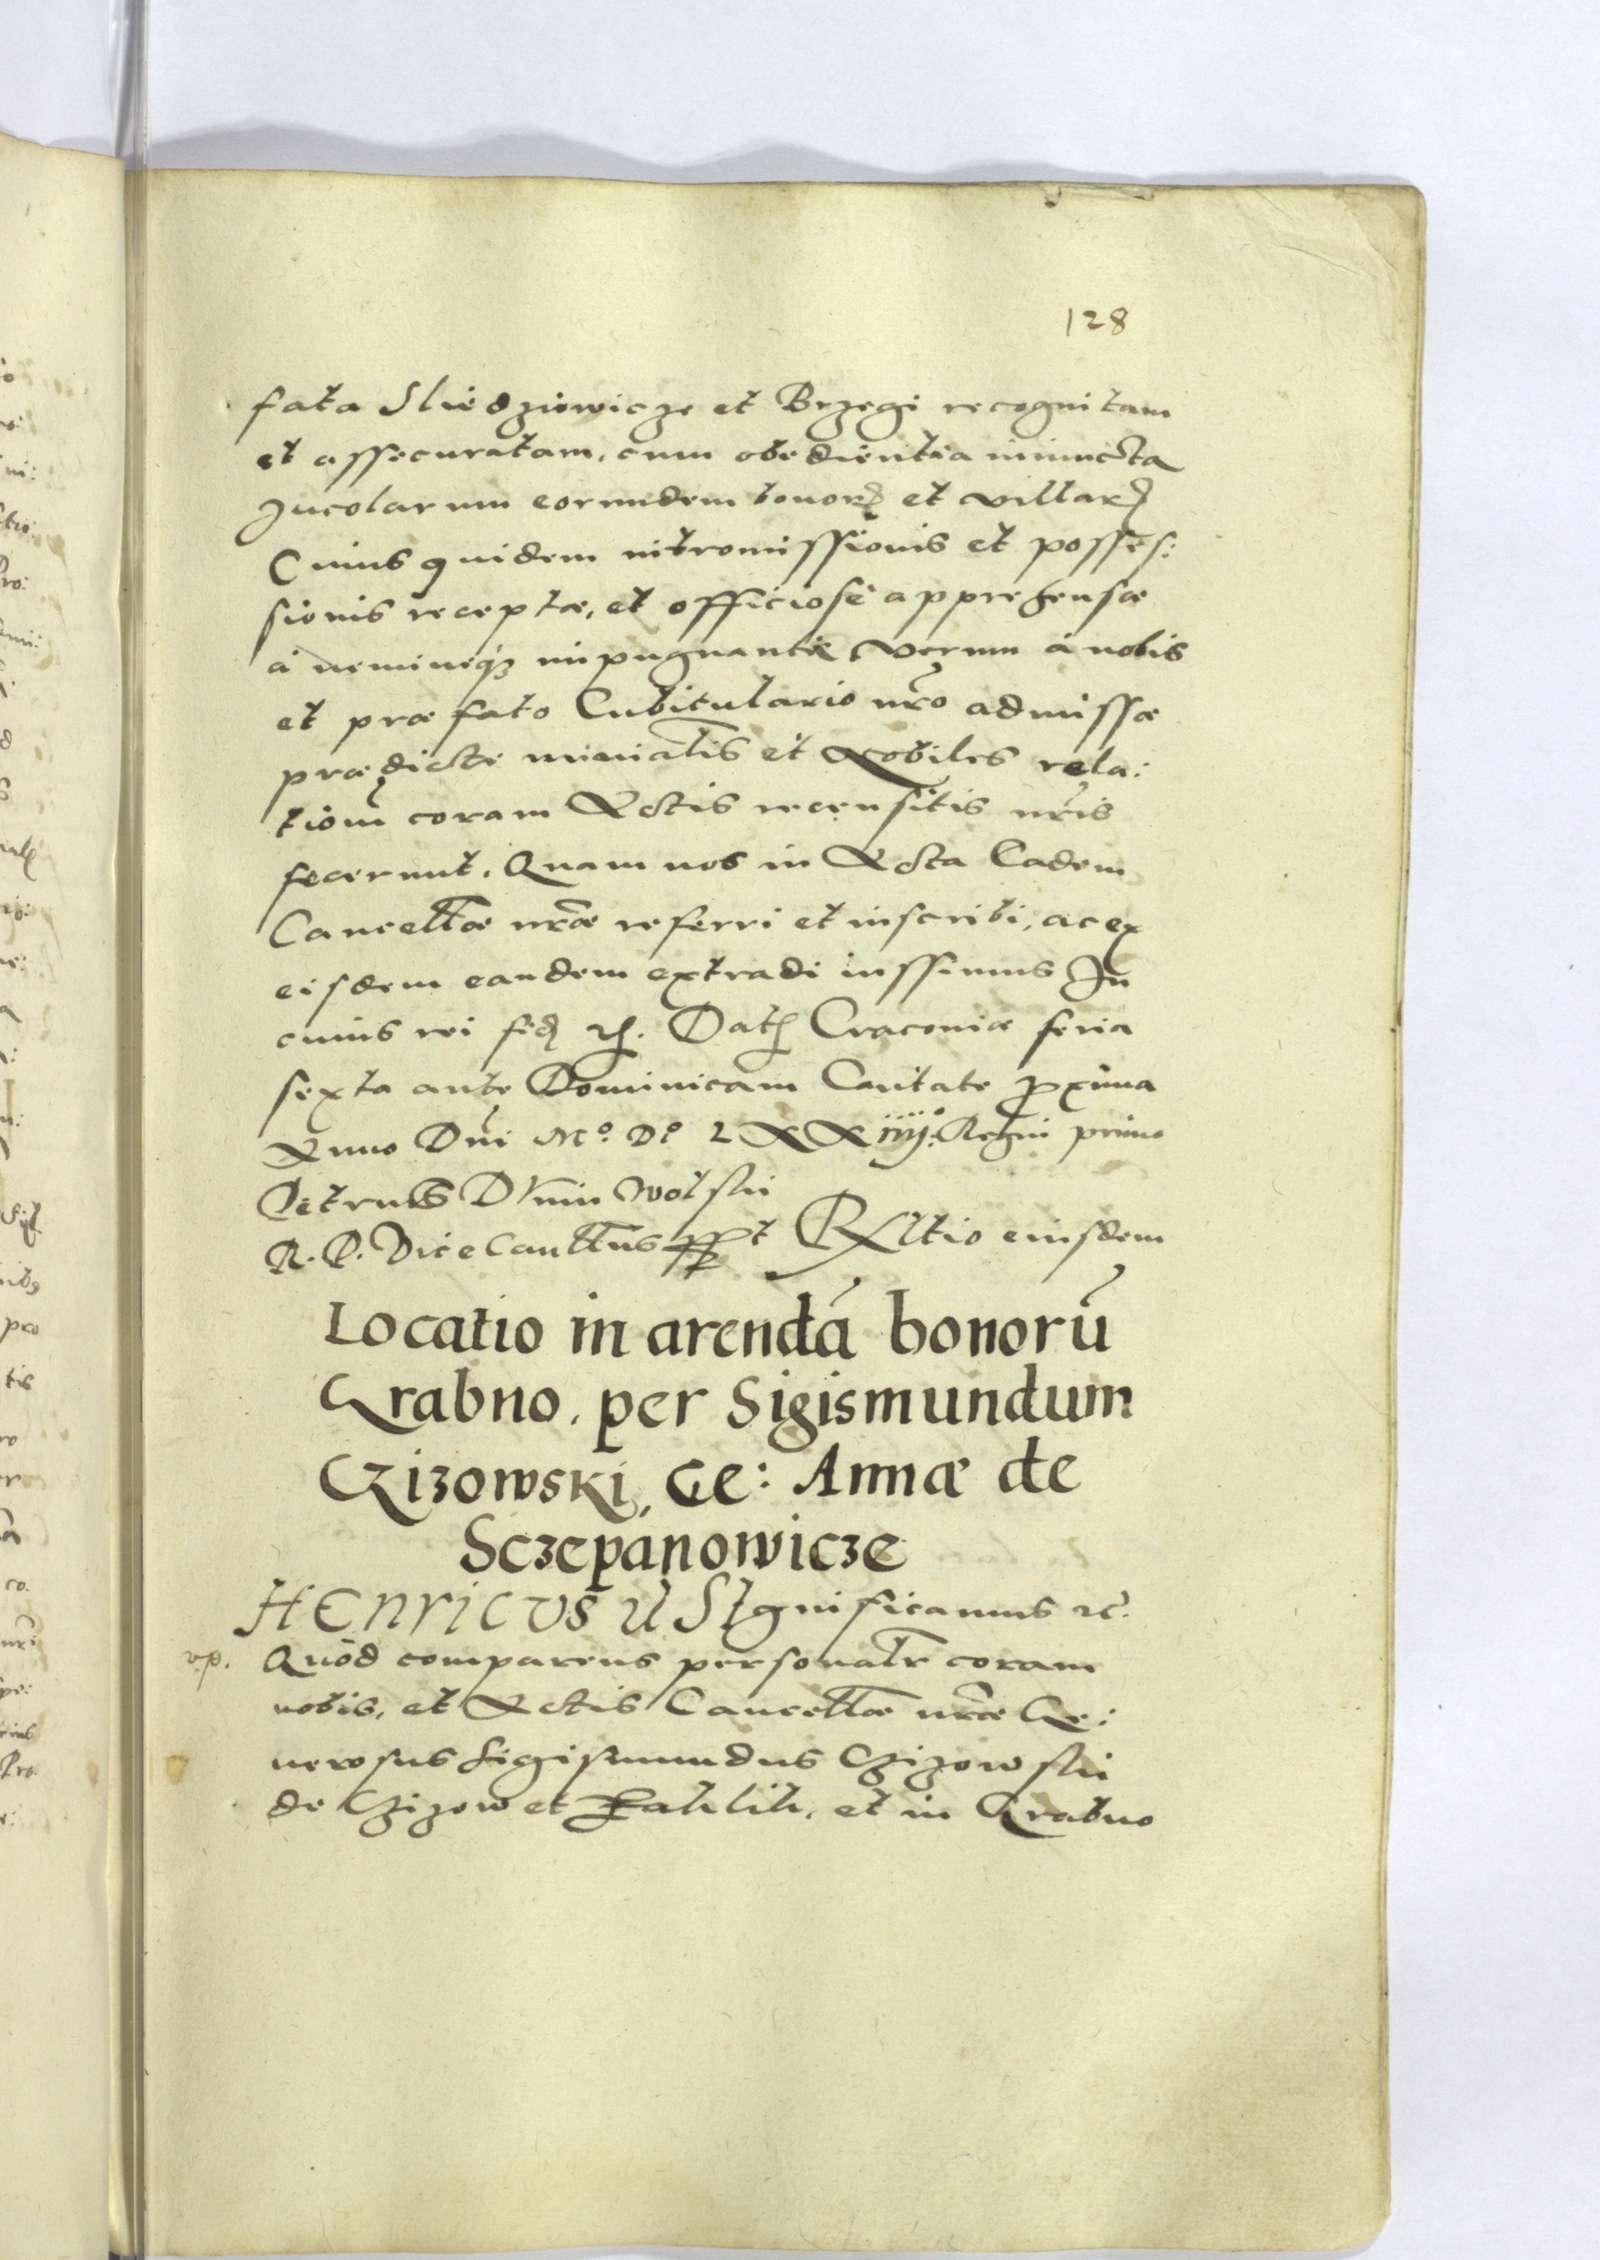 128
fata Sliedziowicze et Brzegi recognitam
et assecuratam, cum obedientia iniuncta
Incolarum eorundem bonorꝝ et villarꝝ
Cuius quidem intromissionis et posses:
sionis receptæ, et officiosè apprehensæ
à nemineqꝫ impugnante verum à nobis
et præfato Cubitulario nr̃o admissæ
prædicti minialis et Nobiles rela:
tionẽ coram Actis recensitis nr̃is
fecerunt. Quam nos in Acta Eadem
Cancellãe nr̃ae referri et inscribi, ac ex
eisdem eandem extradi iussimus In
cuius rei fidē etc. Datū Cracouiæ feria
sexta ante Dominicam Cantate proxima
Anno Dni Mº. Dº LXXiiijº. Regni primo
Petrus Dunin Wolski
R. P. ViceCancellarius sspt Rlãtio eiusdem
Locatio in arendã bonorũ
Grabno, per Sigismundum
Czizowski, Ge: Annæ de
Sczepanowicze
HENRICVS etc Significamus etc.
v.p. Quòd comparens personalr̃ coram
nobis, et Actis Cancellãe nr̃ae Ge:
nerosus Sigismundus Czizowski
de Czizow et in Grabno